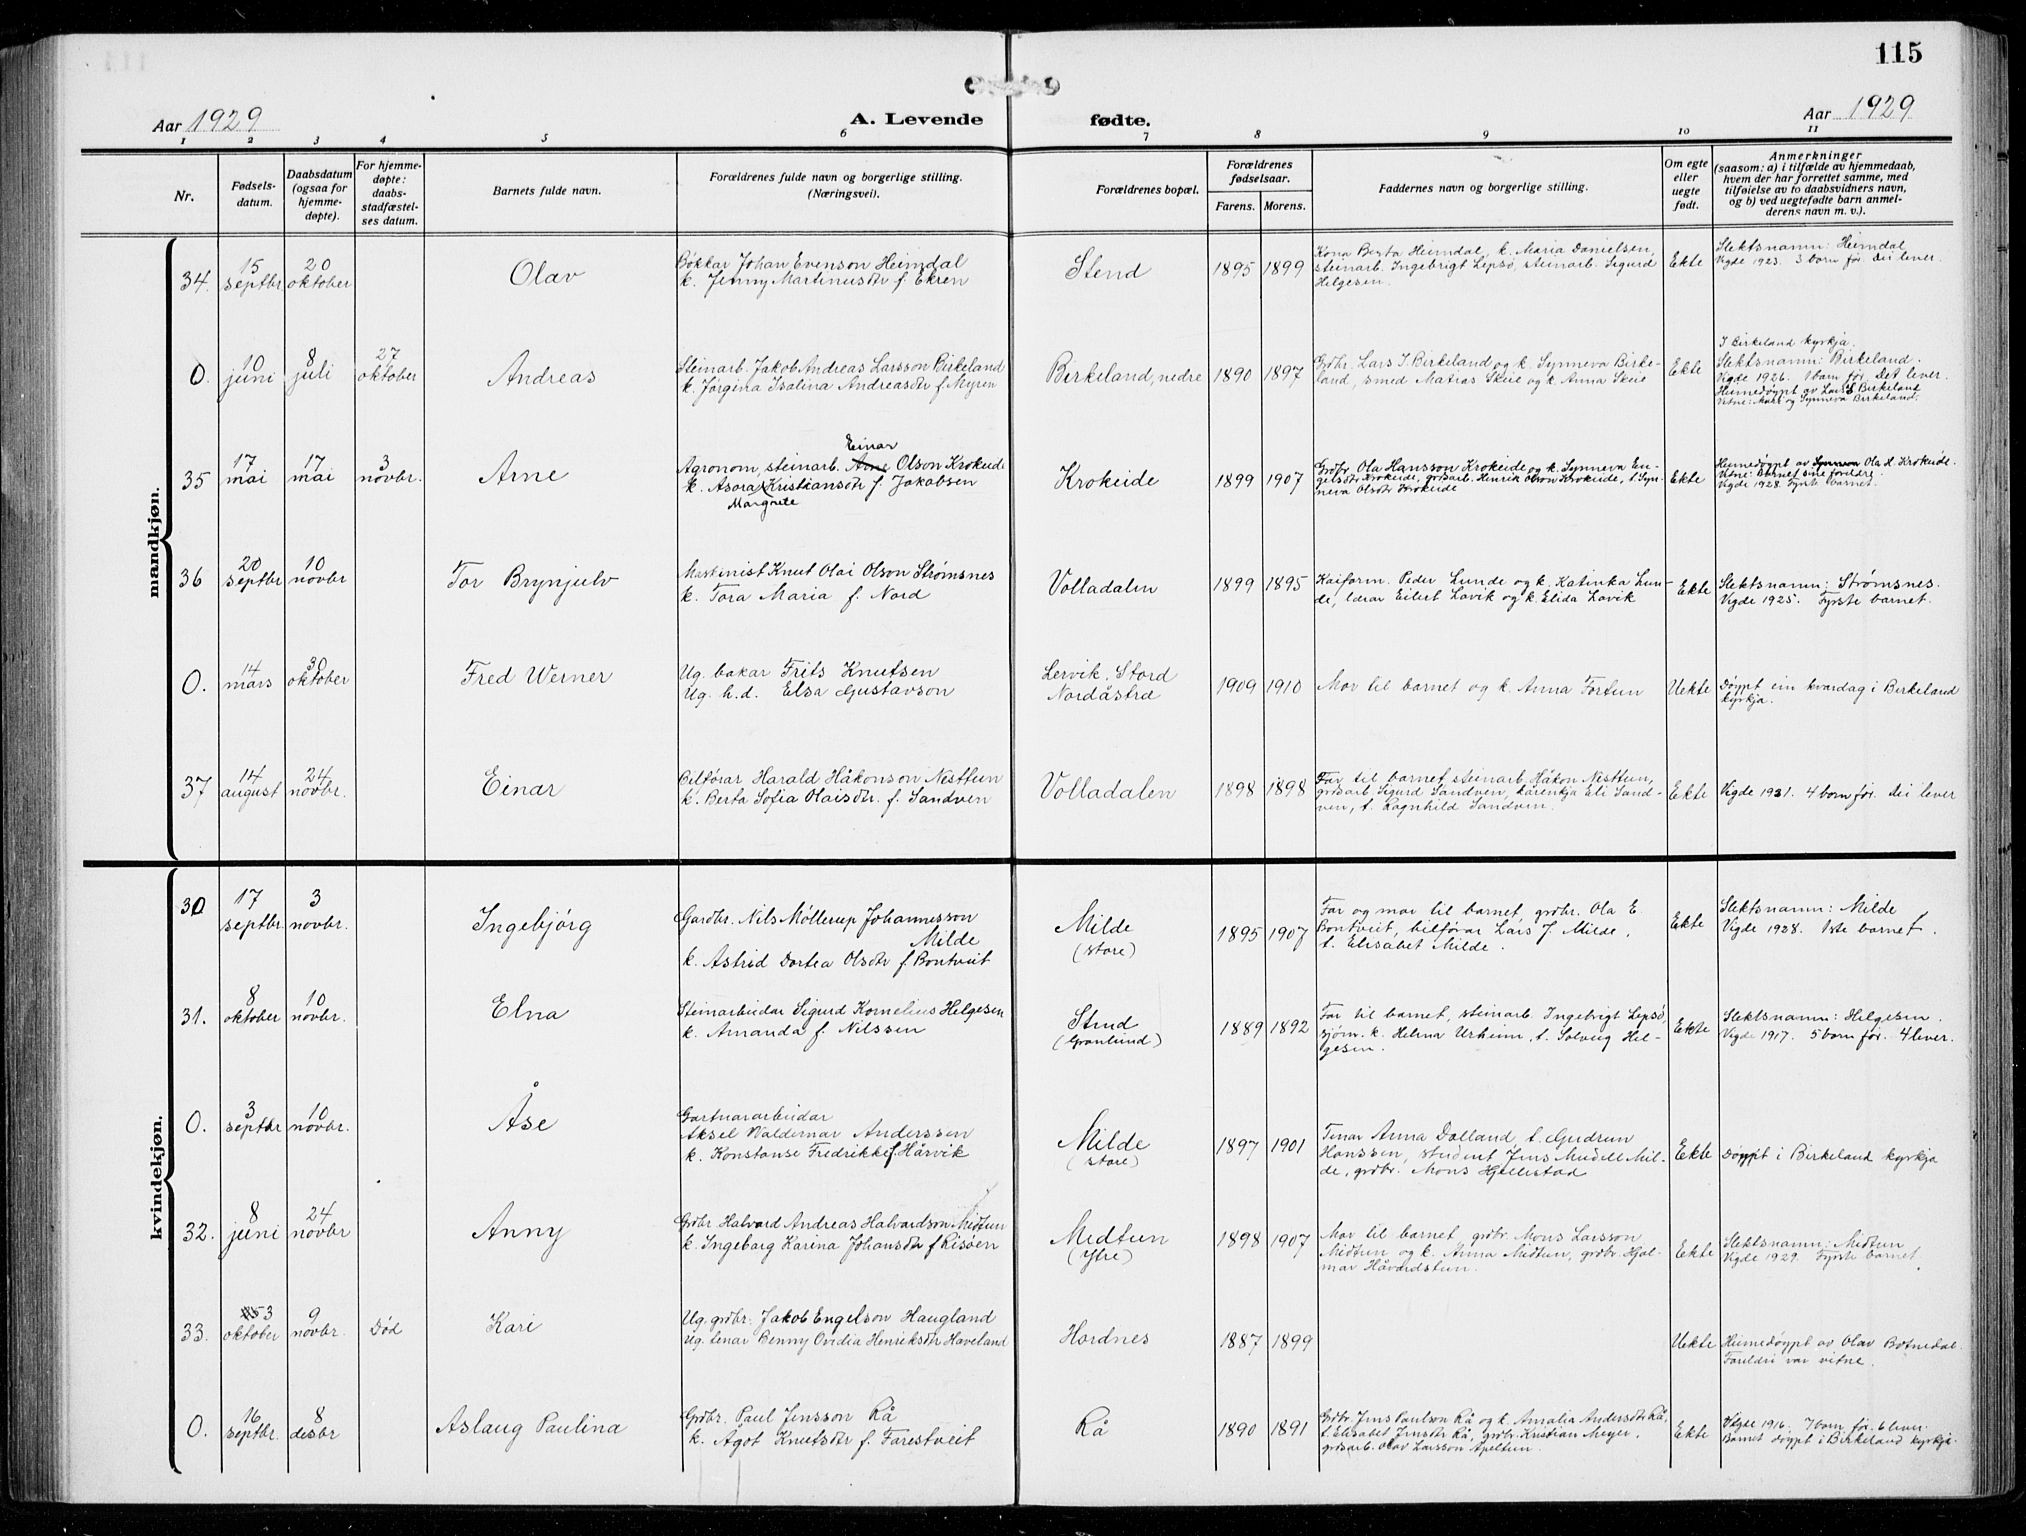 115
Aar 1929
A. Levende fødte.
Aar 1929
1 2 3 4 5 6 7 8 9 10 11
Nr.
Fødsels-
datum.
Daabsdatum
(ogsaa for
hjemme-
døpte).
For hjemme-
døpte:
daabs-
stadfæstel-
ses datum.
Barnets fulde navn.
Forældrenes fulde navn og borgerlige stilling.
(Næringsvei).
Forældrenes bopæl.
Forældrenes
fødselsaar.
Farens. Morens.
Faddernes navn og borgerlige stilling.
Om egte
eller
uegte
født.
Anmerkninger
(saasom: a) i tilfælde av hjemmedaab,
hvem der har forrettet samme, med
tilføielse av to daabsvidners navn,
og b) ved uegtefødte barn anmel-
derens navn m. v.).
mandkjøn.
34.
15
septbr
20
oktober
Olav
Bøkkar Johan Evenson Heimdal
k. Jenny Martinusdtr f. Ekren
Stend
1895 1899
Kona Berta Heimdal, k. Maria Danielsen,
steinarb. Ingebrigt Lepsø, steinarb. Sigurd
Helgesen.
Ekte
Slektsnamn: Heimdal
Vigde 1923. 3 born før. Dei lever.
0.
10
juni
8
juli
27
oktober
Andreas
Steinarb. Jakob Andreas Larsson Birkeland
k. Jørgina Isalina Andreasdtr f. Myren
Birkeland, nedre
1890 1897
Grdbr. Lars J. Birkeland og k. Synneva Birke-
land, smed Matias Skeie og k. Anna Skeie
Ekte
I Birkeland kyrkja.
Slektsnamn: Birkeland.
Vigde 1926. 1 barn før. Det lever.
Heimedøypt av Lars J. Birkeland
Vitne: og Synneva Birkeland.
35
17
mai
17
mai
3
novbr.
Arne
Einar
Agronom, steinarb. Arne Olson Krokeide
k. Asora Kristiansdtr f. Jakobsen
Margrete
Krokeide
1899 1907
Grdbr. Ola Hansson Krokeide og k. Synneva En-
gelsdtr Krokeide, grdsarb. Henrik Olson Krokeide, t. Syn-
neva Olsdtr Krokeide
Ekte
Heimedøypt av Synneva Ola H. Krokeide.
Vitne: Barnet sine foreldre.
Vigde 1928. Fyrste barnet.
36
20
septbr
10
novbr
Tor Brynjulv
Maskinist Knut Olai Olson Strømsnes
k. Tora Maria f. Nord
Volladalen
1899 1895
Kaiform. Peder Lunde og k. Katinka Lun-
de, lærar Eilert Lavik og k. Elida Lavik
Ekte
Slektsnamn: Strømsnes.
Vigde 1925. Fyrste barnet.
0.
14
mars
30
oktober
Fred Werner
Ug. bakar Frits Knutsen
Ug. h.d. Elsa Gustavson
Lervik, Stord
Nordåstræ
1909 1910
Mor til barnet og k. Anna Fortun
Uekte
Døypt ein kvardag i Birkeland
kyrkja.
37
14
august
24
novbr.
Einar
Bilførar Harald Håkonson Nesttun
k. Berta Sofia Olaisdtr. f. Sandven
Volladalen
1898 1898
Far til barnet, steinarb. Håkon Nesttun,
grdsarb. Sigurd Sandven, Eli Sand-
ven, t. Ragnhild Sandven.
Ekte
Vigde 1921. 4 born før. Dei lever
kvindekjøn.
30
17
septbr.
3
novbr.
Ingebjørg
Gardbr. Nils Møllerup Johannesson
Milde
k. Astrid Dortea Olsdtr f. Bontveit
Milde
(store)
1895 1907
Far og mor til barnet, grdbr. Ola E.
Bontveit, bilførar Lars J. Milde,
t. Elisabet Milde.
Ekte
Slektsnamn: Milde
Vigde 1928. 1ste barnet.
31.
8
oktober
10
novbr.
Elna
Steinarbeidar Sigurd Kornelius Helgesen
k. Amanda f. Nilssen
Stend
(Grønlund)
1889 1892
Far til barnet, steinarb. Ingebrigt Lepsø,
sjøm. k. Helma Urheim, t. Solveig Hel-
gesen.
Ekte
Slektsnamn: Helgesen.
Vigde 1917. 5 born før. 4 lever.
0.
3
septbr
10
novbr.
Åse
Gartnararbeidar
Aksel Waldemar Anderssen
k. Konstanse Fredrikke f. Hårvik
Milde
(store)
1897 1901
Tenar Anna Dolland, t. Gudrun
Hanssen, student Jens Mil-
de, grdbr. Mons Hjellestad
Ekte
Døypt i Birkeland kyrkja
32.
8
juni
24
novbr
Anny
Grdbr. Halvard Andreas Halvardson Midtun
k. Ingeborg Karina Johansdtr f. Risøen
Midtun
(Ytre)
1898 1907
Mor til barnet, grdbr. Mons Larsson
Midtun og k. Anna Midtun, grdbr. Hjal-
mar Håvardstun.
Ekte
Slektsnamn: Midtun
Vigde 1929. Fyrste barnet.
33.
3
oktober
9
novbr.
Død
Kari
Ug. grdbr. Jakob Engelson Haugland
Ug. tenar Benny Ovidia Henriksdtr Haveland
Hordnes
1887 1899
Uekte
Heimedøypt av Olav Botnedal.
Foreldri var vitne.
0.
16
septbr.
8
desbr
Aslaug Paulina
Grdbr. Paul Jensson Rå
k. Agot Knutsdtr f. Farestveit
Rå
1890 1891
Grdbr. Jens Paulson Rå og k. Amalia Andersdtr Rå,
t. Elisabet Jensdtr Rå, grdbr. Kristian Meyer,
grdsarb. Olav Larsson Apeltun.
Ekte
Vigde 1916. 7 born før. 6 lever.
Barnet døypt i Birkeland kyrkja.